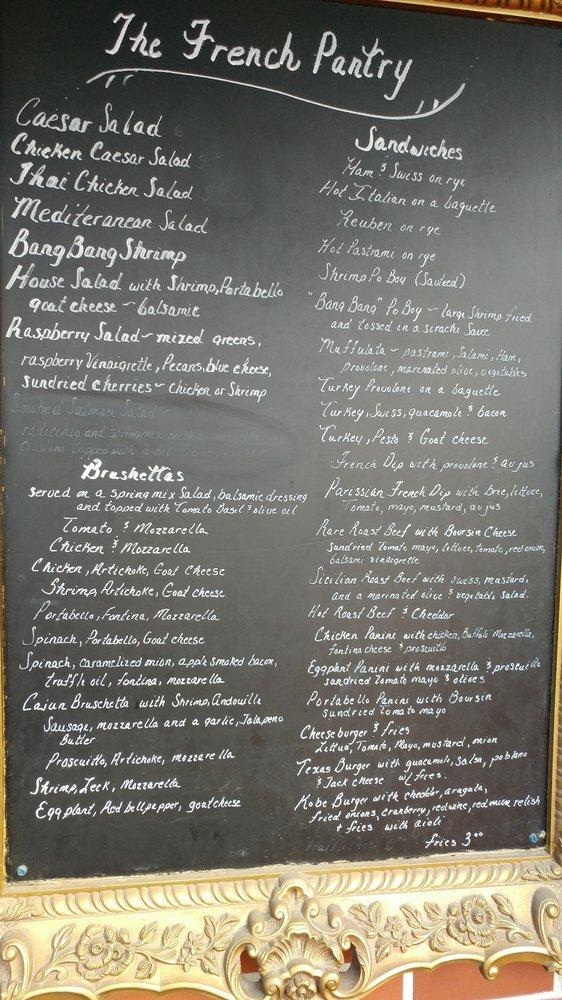 The French Pantry
Caesar Salad
Chicken Caesar Salad
Thai Chicken Salad
Mediteranean Salad
Bang Bang Shrimp
House Salad with Shrimp, Portabello
goat cheese ~ balsamic
Raspberry Salad ~ mixed greens,
raspberry Vinaigrette, Pecans, blue cheese,
sundried cherries ~ Chicken or Shrimp
Smoked Salmon Salad ~
radicchio and springmix with
Brushettas
served on a spring mix Salad, balsamic dressing
and topped with Tomato Basil & olive oil
Tomato & Mozzarella
Chicken & Mozzarella
Chicken, Artichoke, Goat Cheese
Shrimp, Artichoke, Goat cheese
Portabello, Fontina, Mozzarella
Spinach, Portabello, Goat cheese
Spinach, caramelized onion, apple smoked bacon,
truffle oil, fontina, mozzarella
Cajun Bruschetta with Shrimp, Andouille
Sausage, mozzarella and a garlic, Jalapeno
Butter
Proscuitto, Artichoke, mozzarella
Shrimp, Leek, Mozzarella
Eggplant, Red bell pepper, goat cheese
Sandwiches
Ham & Swiss on rye
Hot Italian on a baguette
Reuben on rye
Hot Pastrami on rye
Shrimp Po Boy (Sauteed)
"Bang Bang" Po Boy ~ large Shrimp fried
and tossed in a sirachi Sauce
Muffulata ~ pastrami, Salami, Ham,
provolone, marinated olive, vegetables
Turkey Provolone on a baguette
Turkey, Swiss, guacamole & bacon
Turkey, Pesto & Goat cheese
French Dip with provolone & au jus
Parissian French Dip with brie, lettuce,
Tomato, mayo, mustard, au jus
Rare Roast Beef with Boursin Cheese
sundried Tomato mayo, lettuce, tomato, red onion,
balsamic vinaigrette
Sicilian Roast Beef with swiss, mustard,
and a marinated olive & vegetable salad.
Hot Roast Beef & Cheddar
Chicken Panini with chicken, Buffalo Mozzarella,
fontina cheese & proscuitto
Eggplant Panini with mozzarella & proscuitto
sundried Tomato mayo & olives
Portabello Panini with Boursin
sundried Tomato mayo
Cheeseburger & fries
Lettuce, Tomato, Mayo, mustard, onion
Texas Burger with guacamole, Salsa, poblano
& Jack cheese w/ fries.
Kobe Burger with cheddar, aragula,
fried onions, cranberry, red wine, red onion relish
+ fries with aioli
fries 3.00